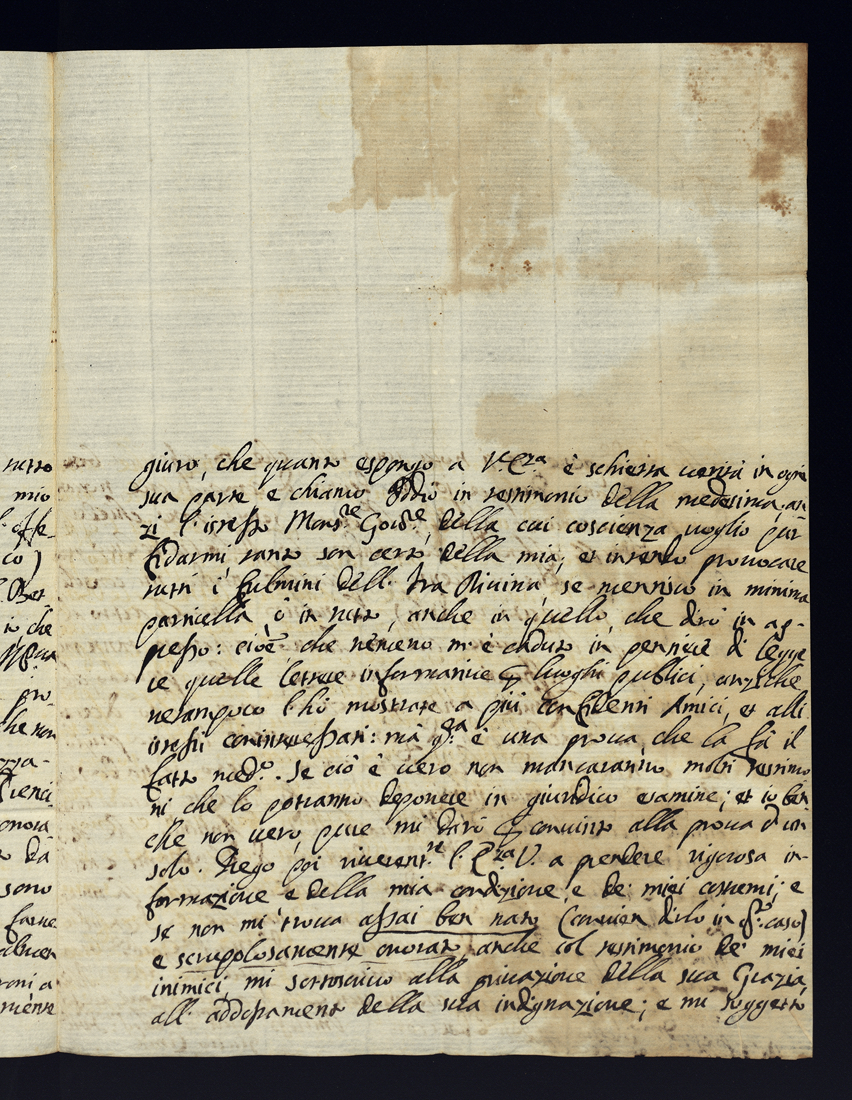 giuro, che quanto espongo a V. Ecza è schietta verità in ogni
sua parte e chiamo Iddio in testimonio della medesima, an-
zi l'istesso Monsre Govre, della cui coscienza voglio pur
fidarmi tanto son certo della mia, et intendo provocare
tutti i fulmini dell'Ira Divina, se mentisco in minima
particella, ò in tutto, anche in quello, che dirò in ap-
presso: cioè che nemeno m'è caduto in pensiere di legge-
re quelle lettere informative per luoghi publici, anziche
netampoco l'hò mostrate a più confidenti Amici, et alli
istessi contrari: mà qta è una prova, che la fà il
fatto medo. Se ciò è vero non mancaranno molti testimo-
ni che lo potranno deponere in giuridico esame; et io ben
che non vero, pure mi darò per convinto alla prova d'un
solo. Prego poi riverente l'Ecza V. a prendere rigorosa in-
formazione e della mia condizione, e de' miei costumi; e
se non mi trova assai ben nato (convien dirlo in qto caso)
e scrupolosamente onorato anche col testimonio de' miei
inimici, mi sottoscrivo alla privazione della sua Grazia,
all'addossamento della sua indignazione; e mi soggetto
netto
mio
che
pro-
che non
onora
dà
sono
farne